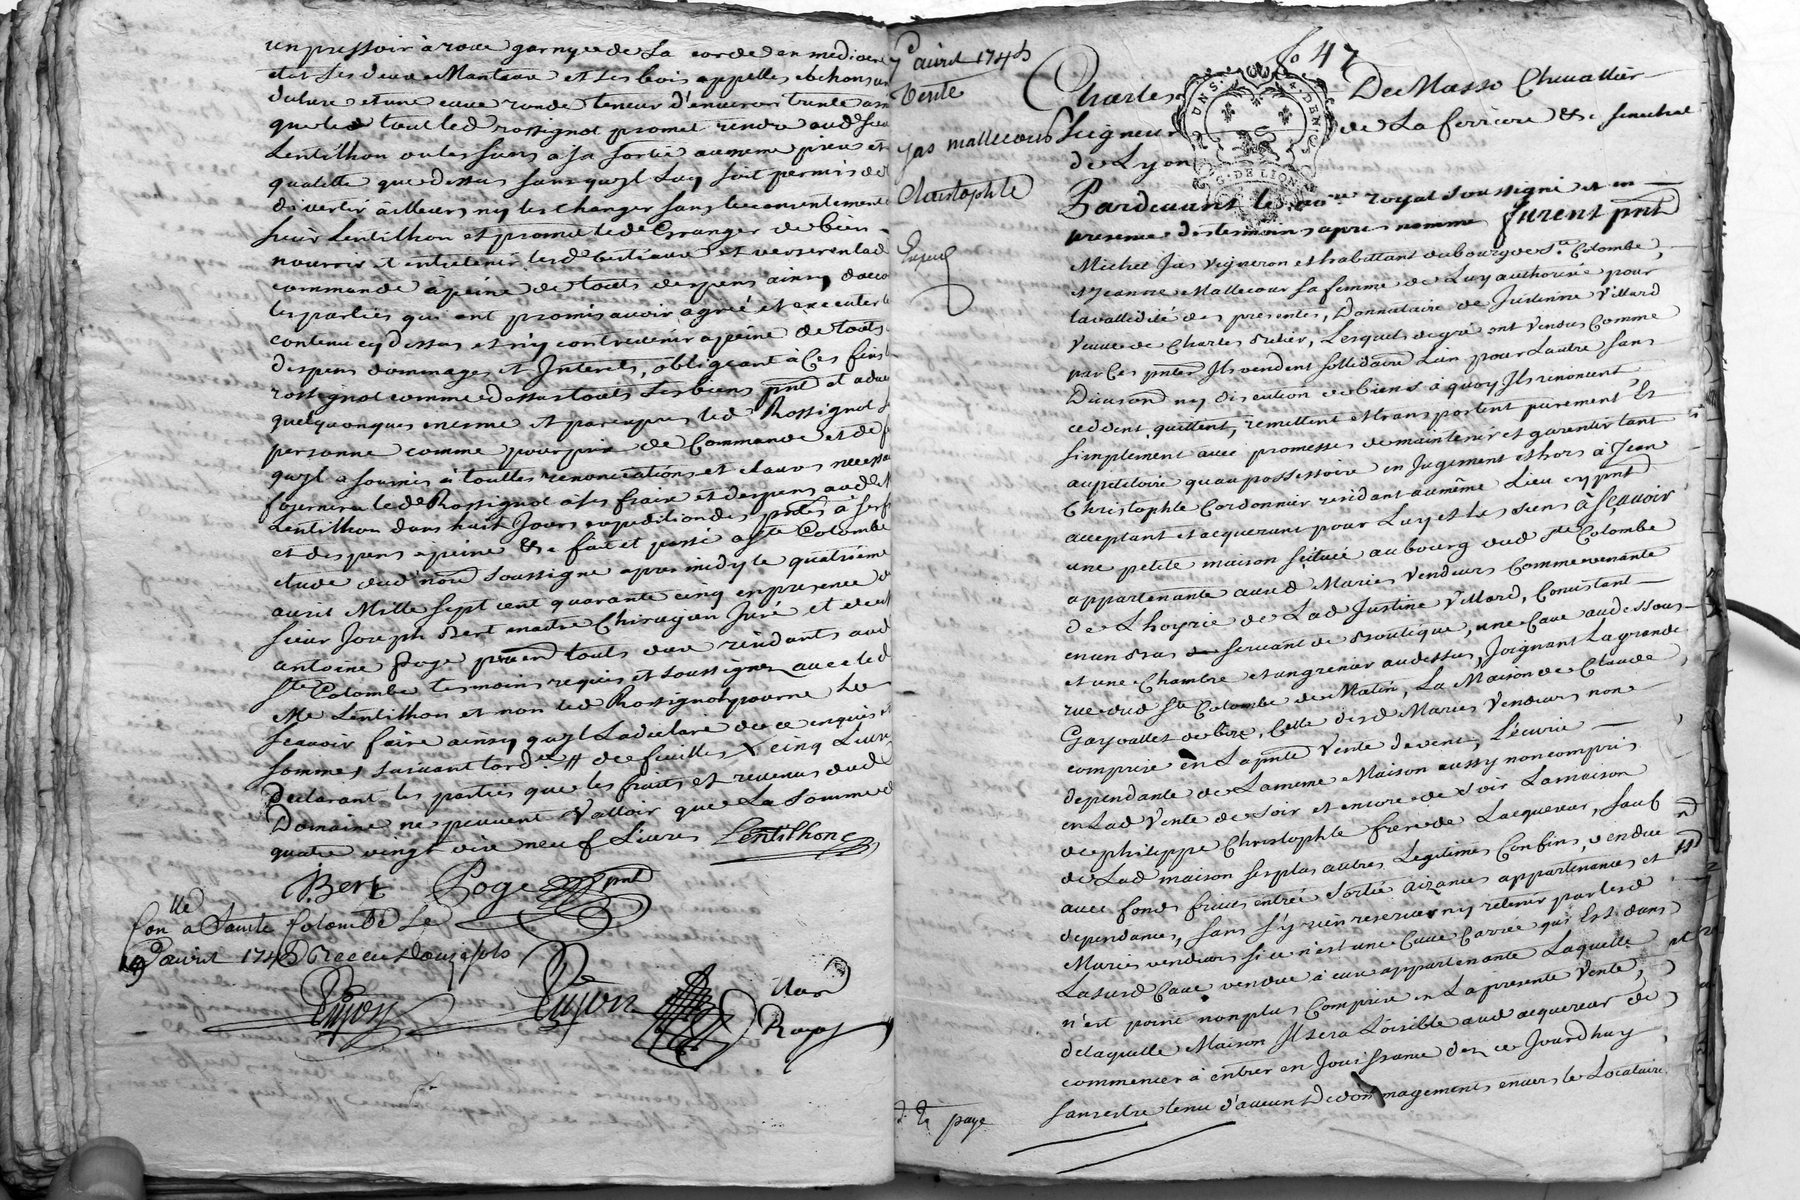 un pressoir à roue garnye de sa corde en mediocre
etat les deux Manteaux et les bois appelles
dature et une cuve ronde teneur d'environ trente
que led tout led rossignol promet rendre aud Sieur
Lentilhon ou les siens a sa sortie au meme prix et
qualitté que dessus sans qu'yl luy soit permis de
divertir ailleurs ny les changer sans le consentement
sieur Lentilhon et promet led Granger de bien
nourrir et entretenir lesd bestiaux et verser en lad
commande a peine de touts despens ainsy
les parties qui ont promis avoir agreé et executer le
contenu cy dessus et n'y contrevenir a peine de touts
despens dommages et Interets, obligeant à ces fins
rossignol comme dessus touts ses biens pnts et
quelquonques mesme et par exprès led Rossignol sa
personne comme pour prix de Commande et de
qu'yl a soumis à touttes renonciations et clauses
fournira led Rossignol a ses fraix et despens aud
Lentilhon dans huit Jours expedition des pntes à ses
et despens a peine &c fait et passé a Ste Colombe
etude dud nore soussigné apres midy le quatrième
avril Mille sept cent quarante cinq en presence de
sieur Joseph Bert maitre Chirurgien Juré et de
antoine Poge touts deux residants aud
Ste Colombe temoins requis et soussignez avec led
Me Lentilhon et non led Rossignol pour ne le
scavoir faire ainsy qu'yl la declaré de ce enquis et
sommé, suivant lord. # de feuilles X cinq Livres
declarant les parties que les fruits et revenus dud
Domaine ne peuvent valloir que la somme de
quatre vingt dix neuf Livres Lentilhon
Bert Poge pnt
Con lle a Sainte Colombe Le
avril 1745 Receu douze sols
Pujon Pujon Nore
Royal
fo 47
7 avril 1745
Vente
Jas mallecour
Christophle
Charles De Masso Chevallier
Seigneur de La ferriere &c senechal
de Lyon
Pardevant le nore royal soussigné et en
presence des temoins apres nommes furent pnts
Michel Jas vigneron et habittant du bourg de Ste Colombe,
et Jeanne Mallecour sa femme de Luy authorisée pour
la vallidité des presentes, Donnataire de Justinne Villard
veuve de Charles, Lesquels de gré ont vendus Comme
par Ces pntes Ils vendent sollidairement Lun pour Lautre sans
Division ny discution de biens à quoy Ils renoncent
ceddent, quittent, remettent et transportent purement Et
simplement avec promesses de maintenir et garentir tant
au petitoire qu'au possessoire en Jugement et hors à Jean
Christophle Cordonnier residant au même Lieu cy pnt
acceptant et acquerant pour Luy et les siens à sçavoir
une petite maison scituée au bourg dud Ste Colombe
appartenante auxd Maries vendeurs Comme venante
de Lhoyrie de Lad Justine Villard, Consistant
en un Bas servant de Boutique, une Cave au dessous
et une Chambre et un grenier au dessus, Joignant La grande
rue dud Ste Colombe de Matin, La Maison de Claude
Gayvallet de bize, Celle desd Maries vendeurs non
comprise en La pnte Vente de vent, L'écurie
dependante de La meme Maison aussy non compris
en Lad Vente de soir et encore de soir La maison
de philippe Christophle frere de Lacquereur, sauf
de Lad maison ses plus autres Legitimes Confins, vendue
avec fonds fruits entrée Sortie aizances appartenances et
dependances, sans s'y rien reserver ny retenir par lesd
Maries vendeurs si ce n'est une Cave Carrée qui Est dans
La susd Cave vendue à eux appartenante Laquelle
n'est point non plus Comprise en La presente Vente,
de laquelle Maison Il sera Loisible aud acquereur de
commencer à entrer en Jouissance dez ce Jourdhuy
sans estre tenu d'aucuns Dedommagements envers le Locataire
page